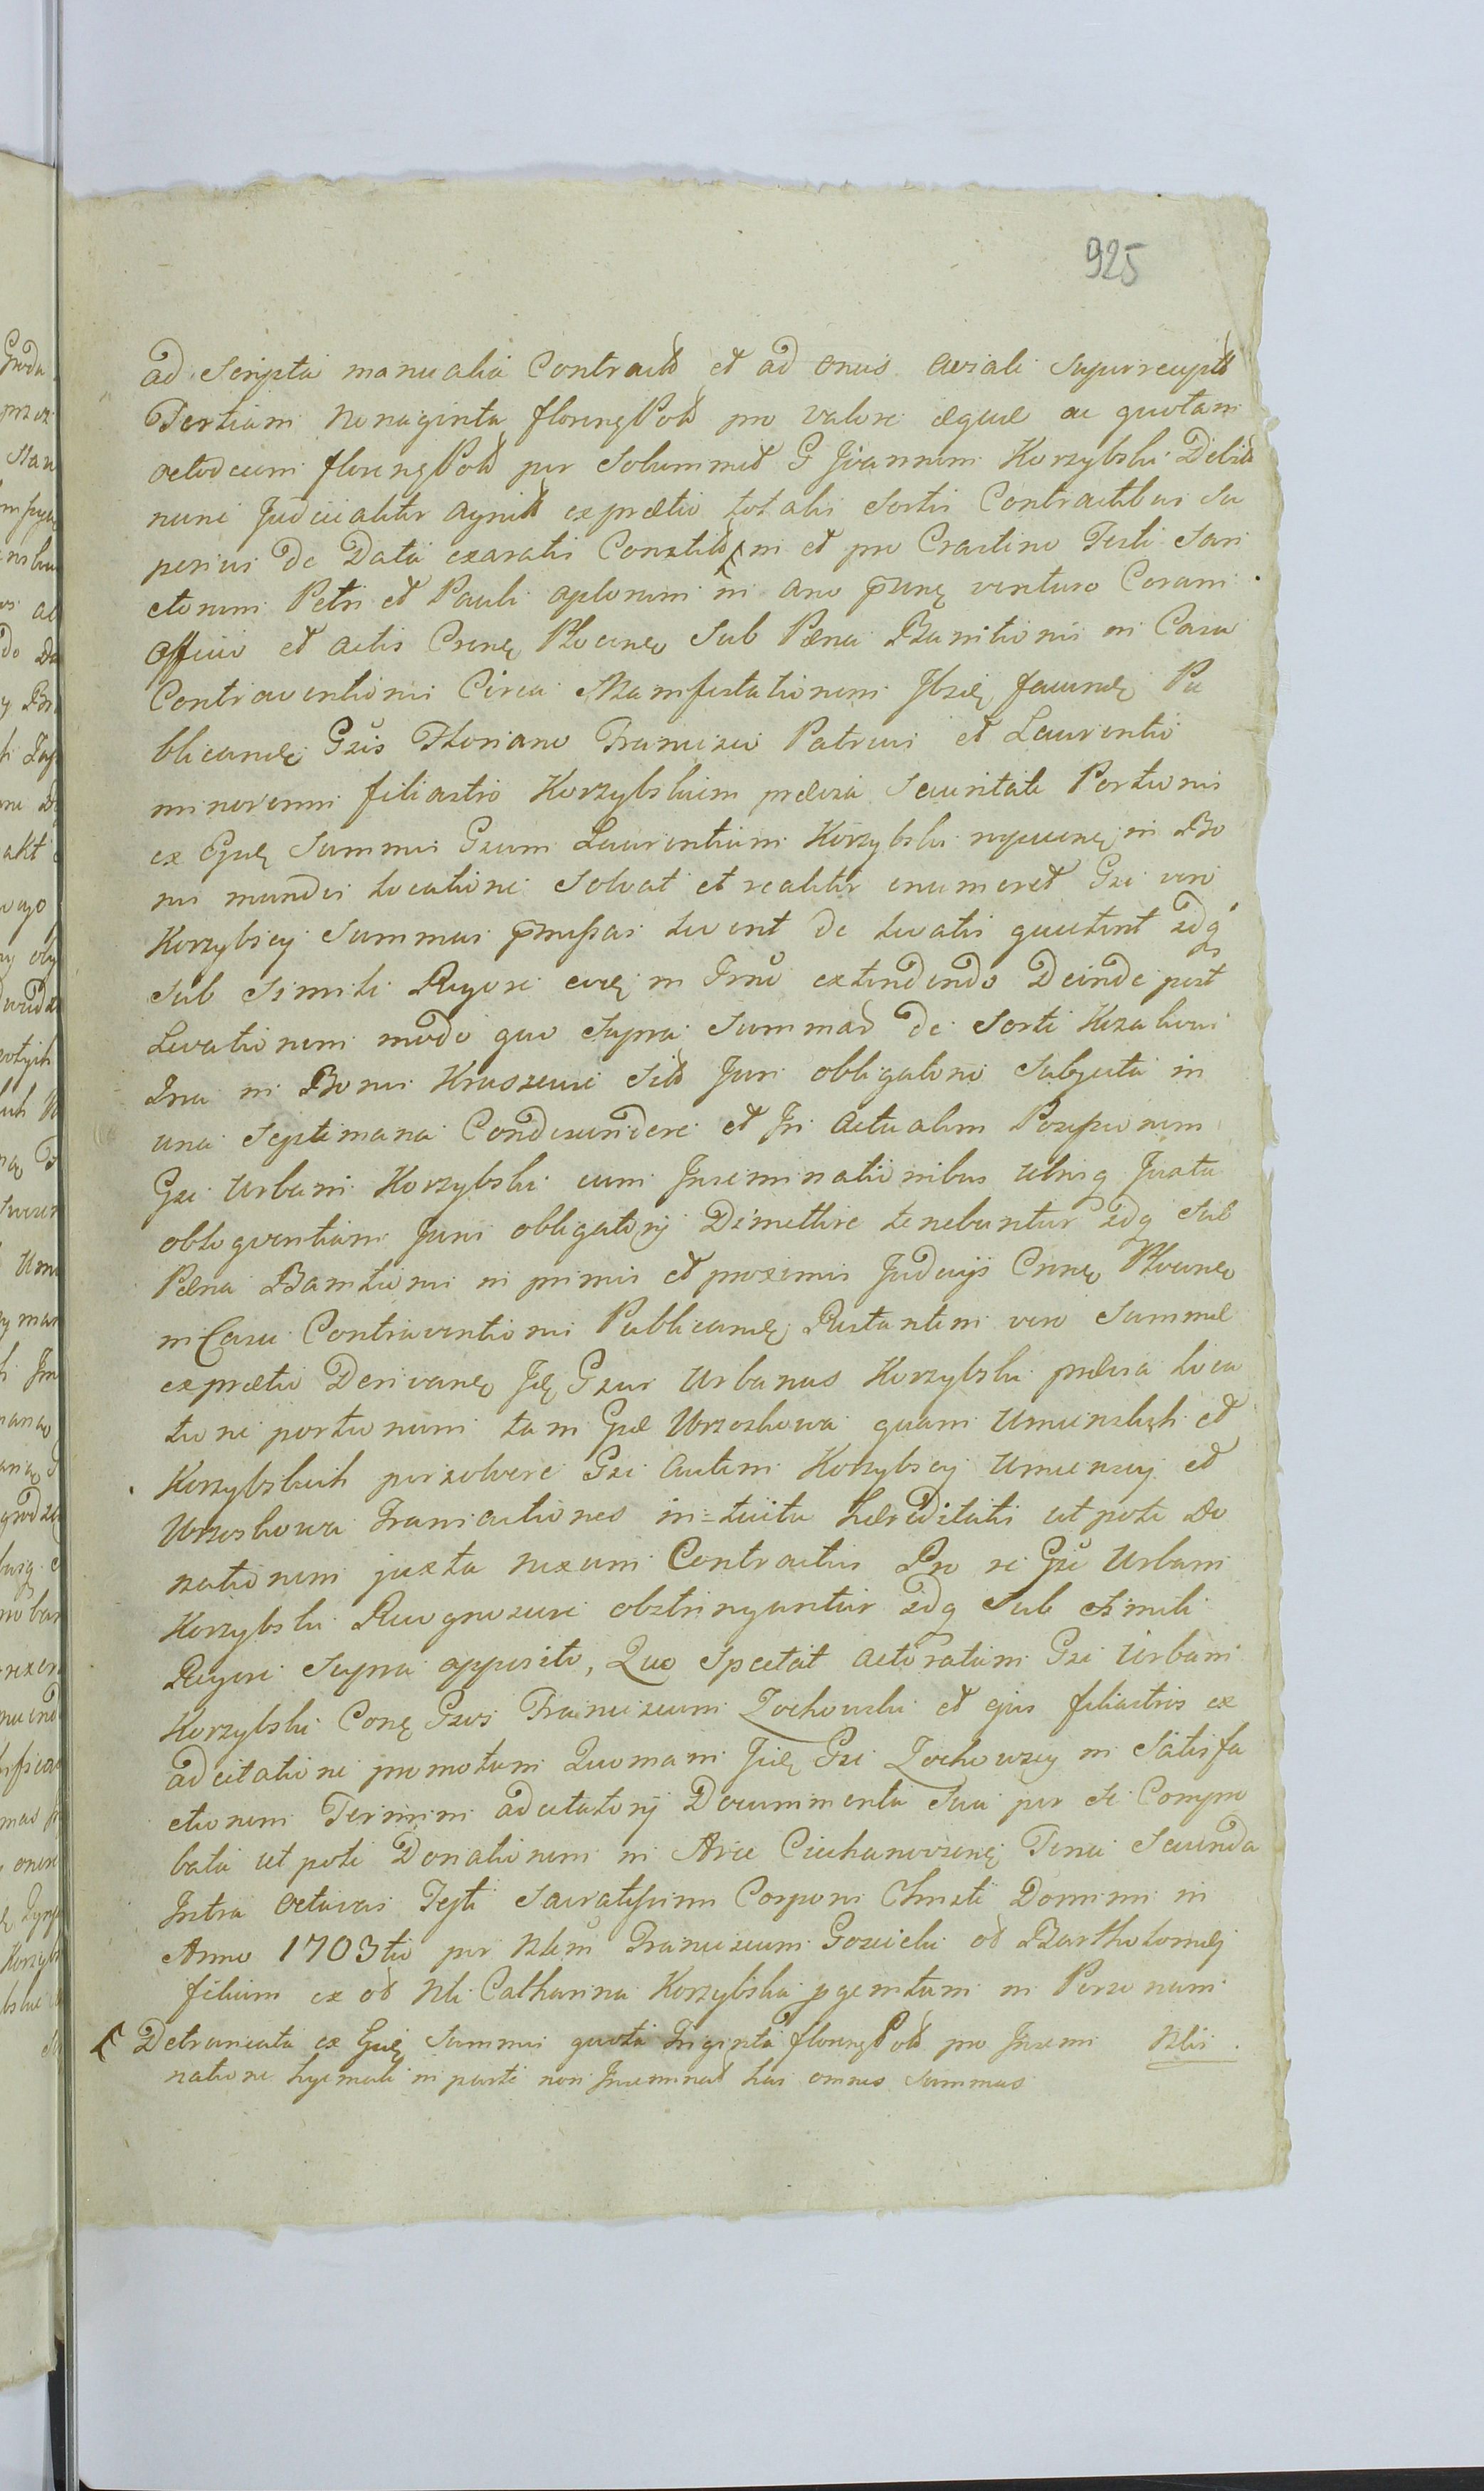 925
ad Scripta manualia Contract et ad onus aviali superrecept
Tertiam Nonaginta floreng Pol pro valore æquæ ac quotam
octodecim floreng Pol per Solummet G Joannem Korzybski Debit
nunc Judicialiter agnit ex prætio totalis Sortis Contractibus Su
perius de Data exaratis Constit in et pro Crastino Festi San
ctorum Petri et Pauli aplorum in ano p̄unę venturo Coram
Officio et actis Crnę Plocenę Sub Pæna Banitionis in Casu
Contraventionis Circa Manifestationem Ibidę faciendę Pu
blicandę Gsis Floriano Francisci Patrui et Laurentio
minorenni filiastro Korzybskim prævia Securitate Portionis
ex Eque Summis Gsum Laurentium Korzybski in Bo
nis mundis locatione Solvat et realiter enumeret Gsi vero
Korzybscy Summas p̄missas levent de levatis quietent idq
sub Simili Rigore eorę in Trno extendendo Deinde post
Levationem modo quo Supra Summad de Sorte
Sua in Bonis Kruszewie Sit Juri obligatorio Subjecta in
una Septimana Condescendere et In actualem Possessionem
Gsi Urbani Korzybski cum Inseminationibus utrisq Juxta
obloquentiam Juris obligatorij Dimittere tenebuntur idq Sub
Pæna Banitionis in primis et proximis Judicijs Crnę Plocenę
in Casu Contraventionis Publicandę Restantem vero Summæ
ex prætio Derivanę Ję Gsus Urbanus Korzybski prævia loca
tione portionum tam Gsæ Wrzoskowa quam Umienskich et
Korzybskich persolvere Gsi autem Korzybscy Umienscy et
Wrzoskowa Transactiones in=tuitu hæreditatis utpote Do
nationem juxta nexum Contractus Pro re Gsi Urbani
Korzybski Recognoscere obstringuntur idq Sub Simili
Rigore Supra apposito, Quo Spectat actoratum Gsi Urbani
Korzybski Conę Gsos Franciscum Zochowski et ejus filiastros ex
adcitatione promotum Quoniam Jidę Gsi Zochowscy in Satisfa
ctionem Termini adcitatorij Documenta Sua per se Compro
bata ut pote Donationem in Arce Ciechanoviensę Feria Secunda
Intra octavas Festi Sacratissimi Corporis Christi Domini in
Anno 1703tio per Nlem Franciscum Gosicki od Bartholomæj
filium ex od Nli Catharina Korzybska pgenitum in Personam
Nlis
Detruncata ex Gsę Summis quota Triginta floreng Pol pro Insemi
natione hyemali in parte non Inseminat has omnes Summas